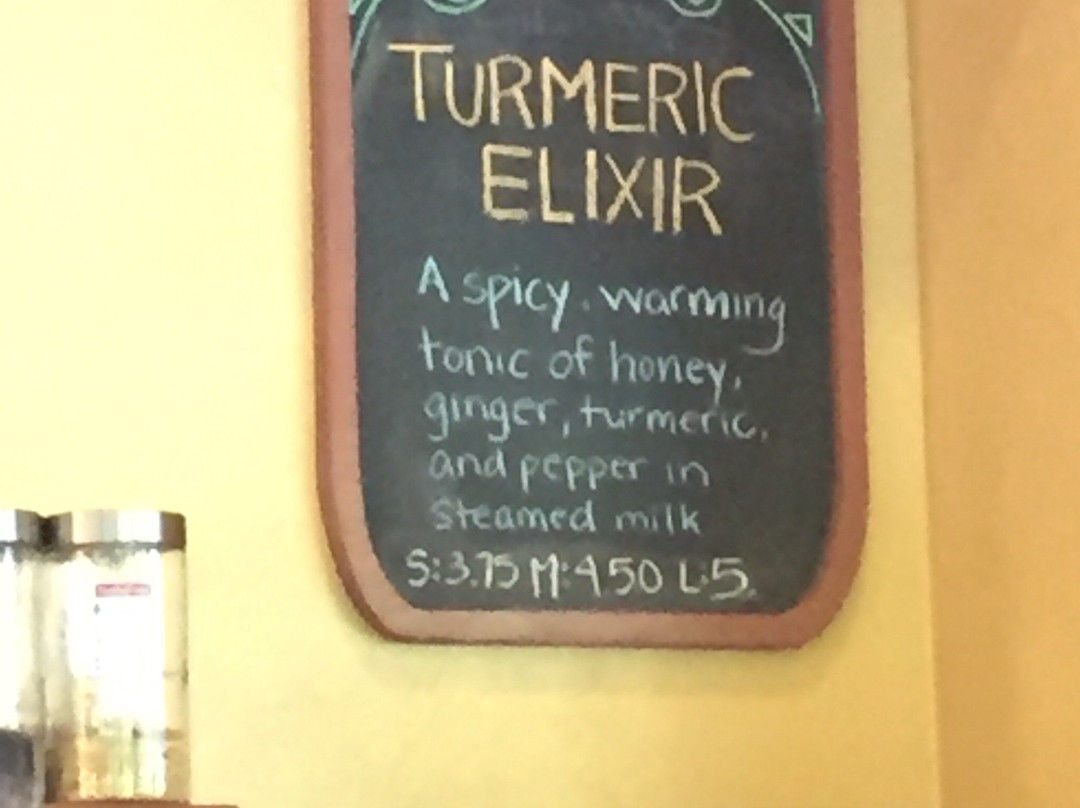 TURMERIC
ELIXIR
A spicy, warming
tonic of honey,
ginger, turmeric,
and pepper in
steamed milk
S:3.75 M:4.50 L:5.